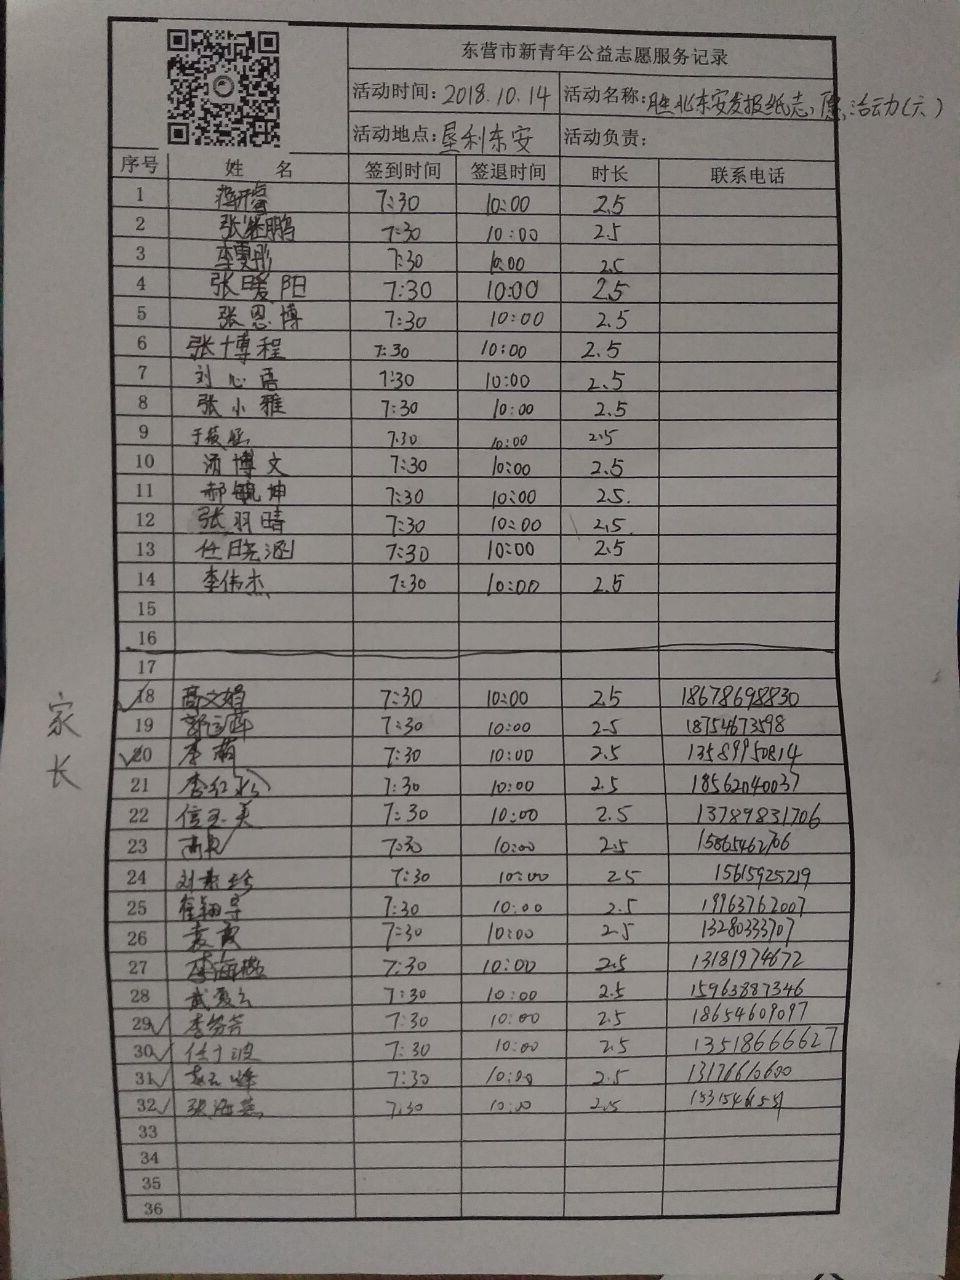 东营市新青年公益志愿服务记录
活动时间：2018.10.14 活动名称：胜北东安发报纸志愿活动(六)
活动地点：垦利东安 活动负责：
序号 姓 名 签到时间 签退时间 时长 联系电话
1 7:30 10:00 2.5
2 张继鹏 7:30 10:00 2.5
3 李夏彤 7:30 10:00 2.5
4 张暖阳 7:30 10:00 2.5
5 张恩博 7:30 10:00 2.5
6 张博程 7:30 10:00 2.5
7 刘心语 7:30 10:00 2.5
8 张小雅 7:30 10:00 2.5
9 7:30 10:00 2.5
10 博文 7:30 10:00 2.5
11 郝毓坤 7:30 10:00 2.5.
12 张羽晴 7:30 10:00 2.5
13 任晓涵 7:30 10:00 2.5
14 李伟杰 7:30 10:00 2.5
15
16
17
家长
18 高文娟 7:30 10:00 2.5 18678698830
19 7:30 10:00 2.5 18754673598
20 李萌 7:30 10:00 2.5 13589950814
21 李红 7:30 10:00 2.5 18562040037
22 信玉美 7:30 10:00 2.5 13789831706
23 7:30 10:00 2.5
24 刘素珍 7:30 10:00 2.5 15615925219
25 崔翔宇 7:30 10:00 2.5 19963762007
26 袁霞 7:30 10:00 2.5 13280333707
27 李海 7:30 10:00 2.5 13181974672
28 武爱云 7:30 10:00 2.5 15963887346
29 李 7:30 10:00 2.5 18654609097
30 任 波 7:30 10:00 2.5 13518666627
31 7:30 10:00 2.5 13176610600
32 张海燕 7:30 10:00 2.5
33
34
35
36